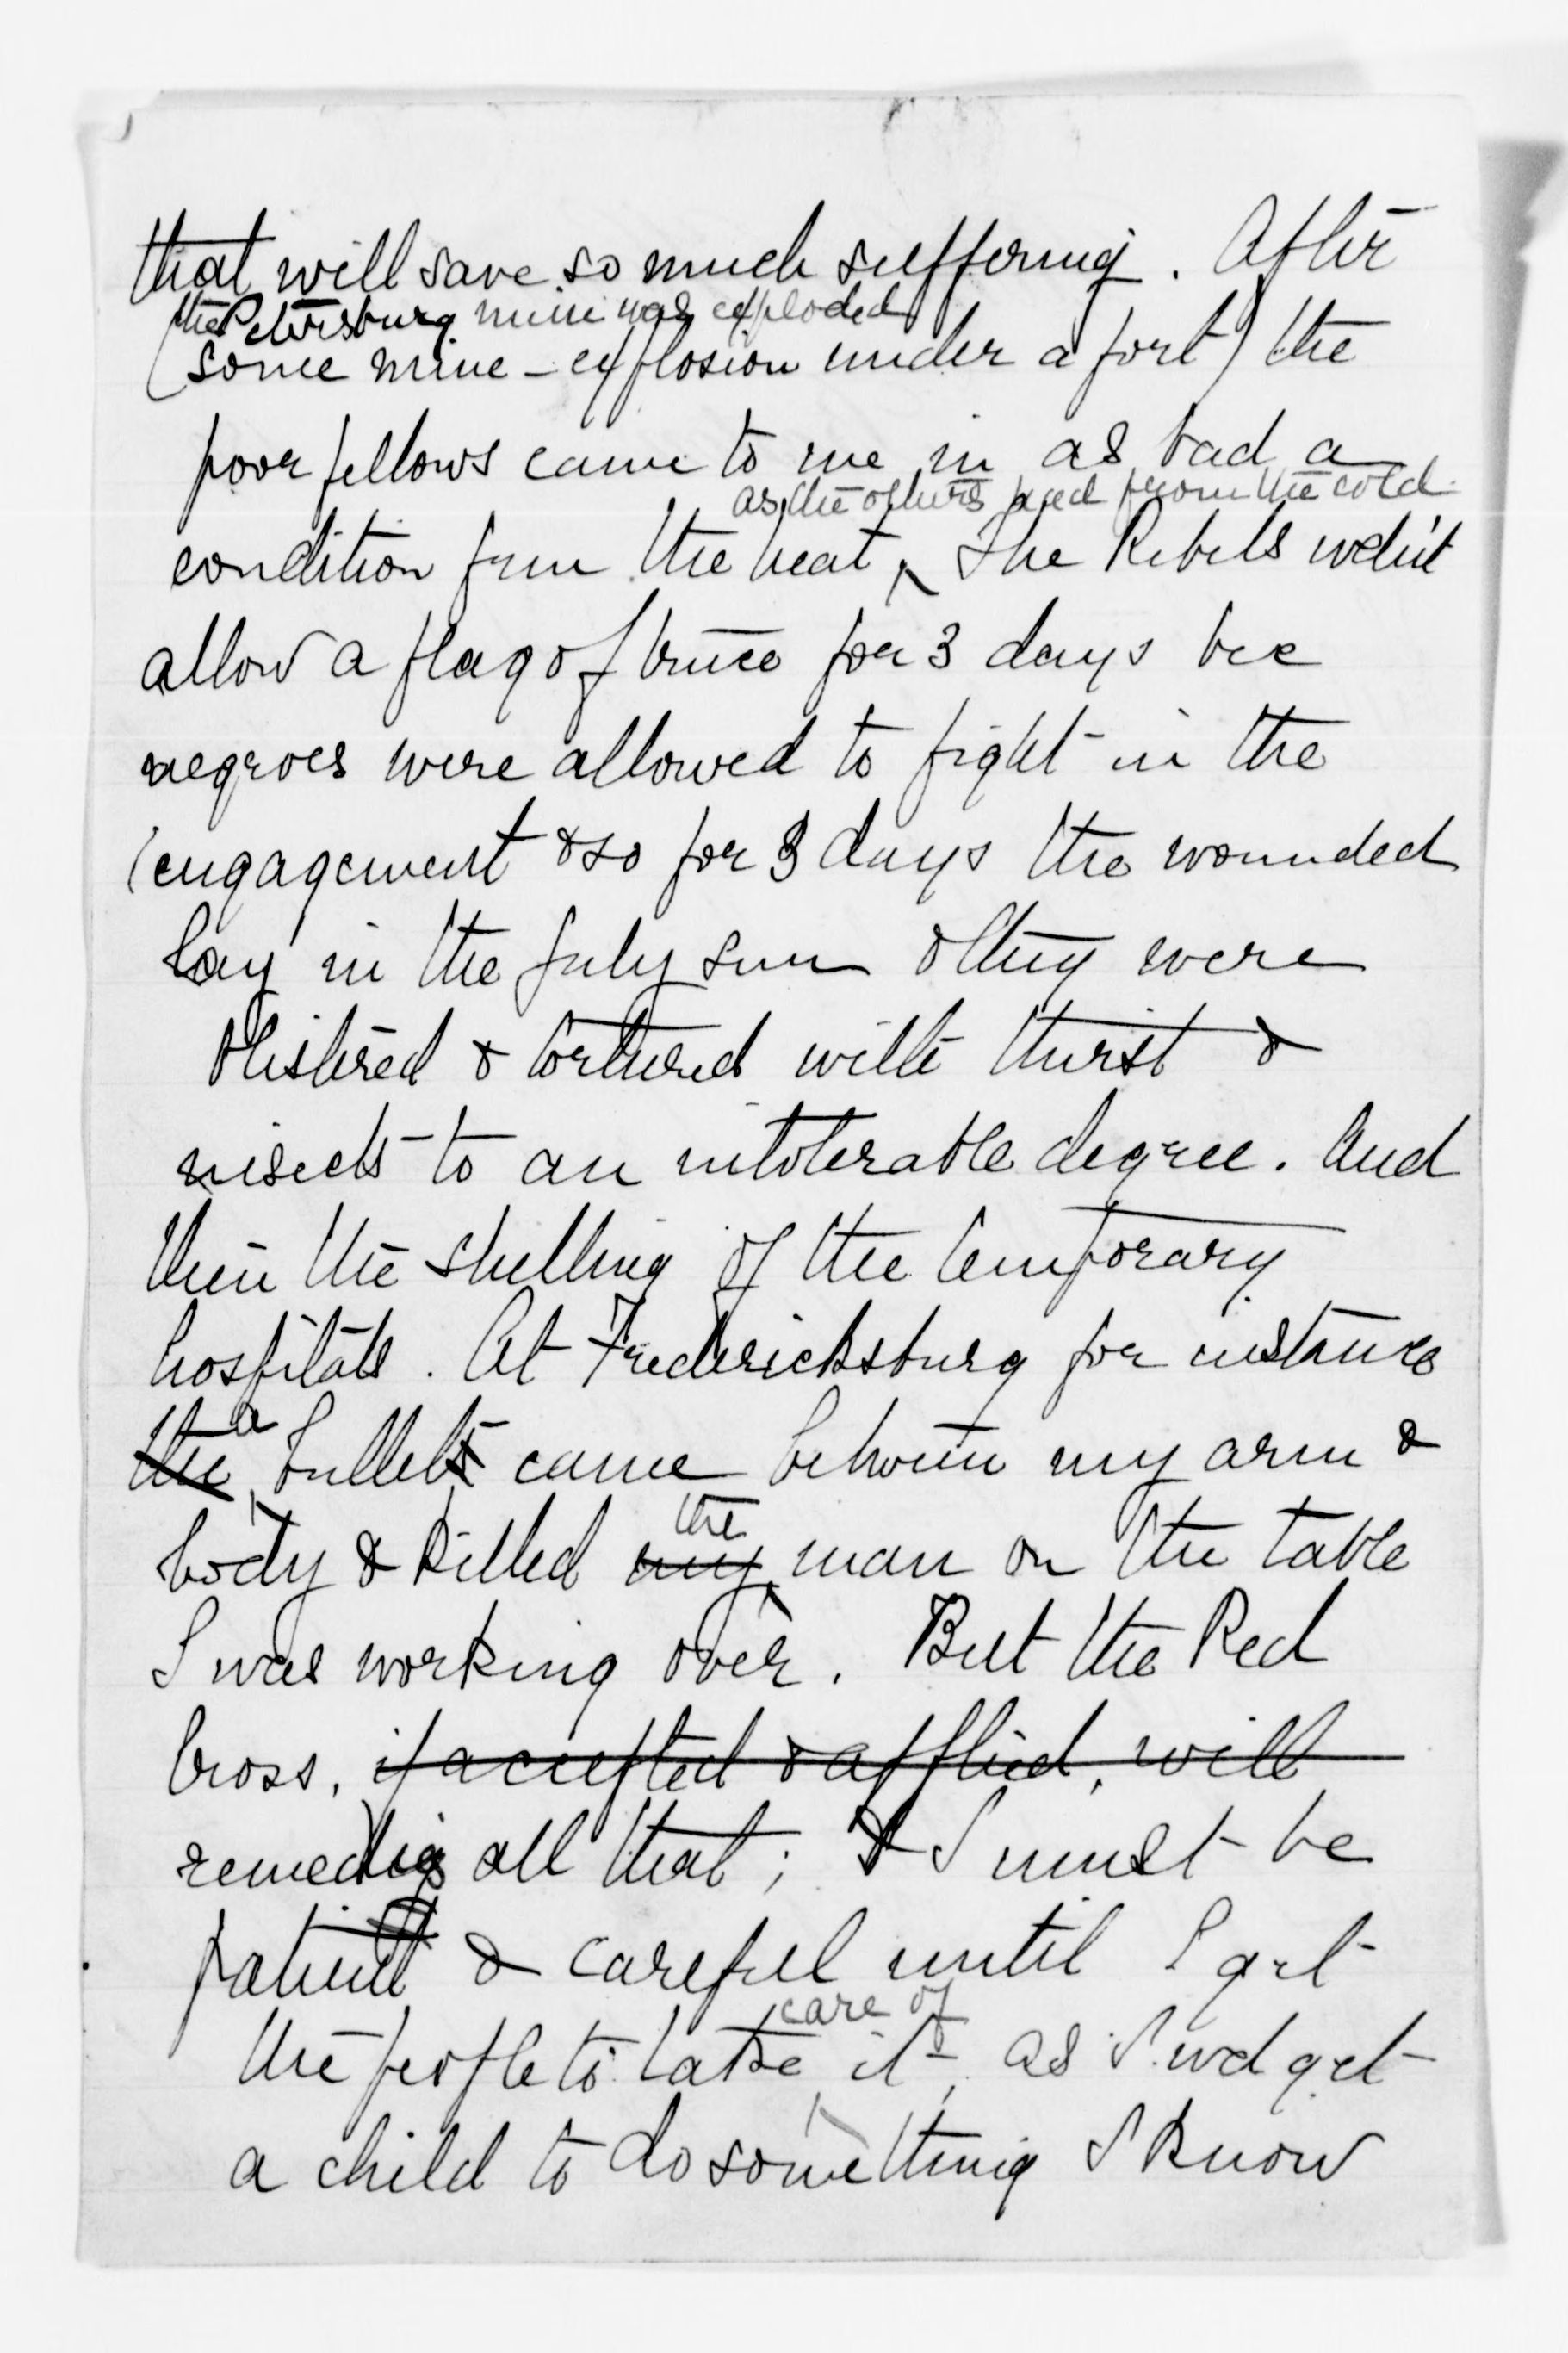 that will save so much suffering. After
the Petersburg mine was exploded
(some mine-explosion under a fort) the
poor fellows came to me in as bad a
as the others had from the cold.
condition from the heat, The Rebels wdn't
allow a flag of truce for 3 days bec
negroes were allowed to fight in the
engagement & so for 3 days the wounded
lay in the July sun & they were
blistered & tortured with thirst &
insects to an intolerable degree. And
then the shelling of the temporary
hospitals. At Fredericksburg for instance
a
the bullets came between my arm &
the
body & killed my man on the table
I was working over. But the Red
Cross, if accepted & applied, will
remedies all that; & I must be
patient & careful until I get
care of
the people to take it, as I wd get
a child to do something I know